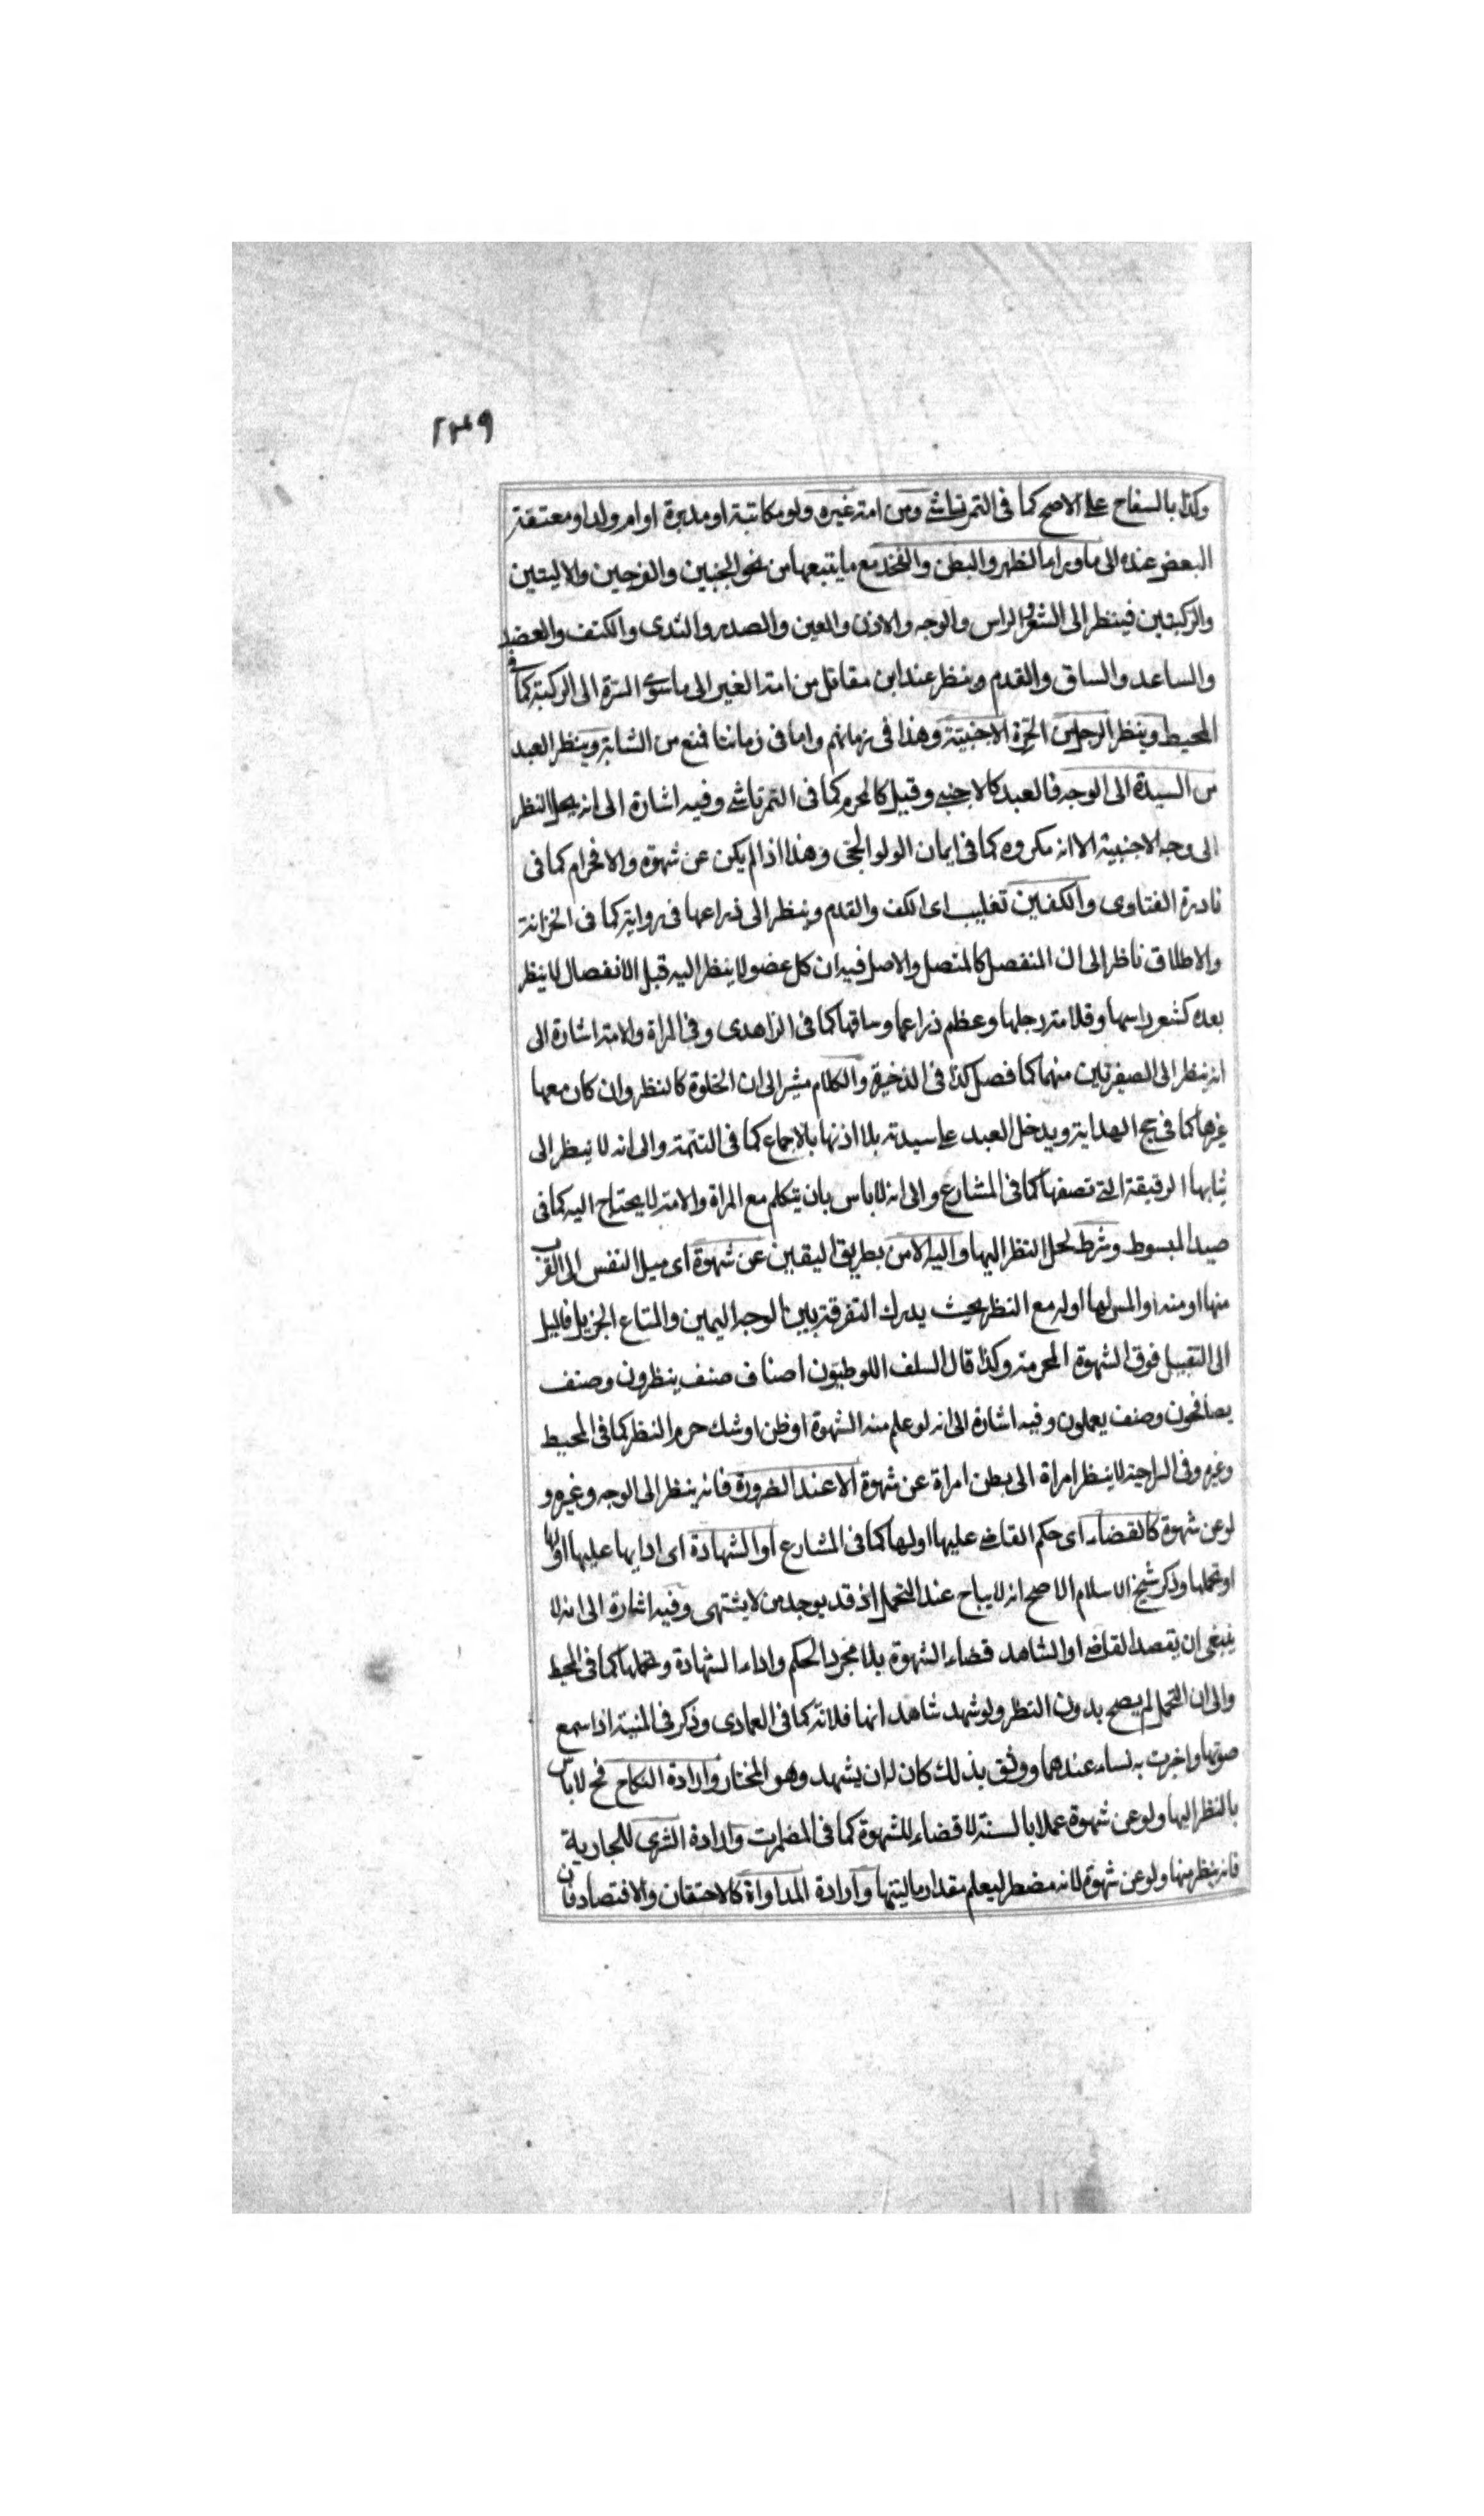 ٢٣٩
وكذا بالسفاح على الاصح كما فى التمرتاشى ومن امة غيره ولو مكاتبة او مدبرة او ام ولد او معتقة
البعض عنده الى ما وراء الظهر والبطن والفخذ مع ما يتبعها من نحو الجنبين والفرجين والاليتين
والركبتين فينظر الى الشعر والراس والوجه والاذن والعين والصدر والثدى والكتف والعضد
والساعد والساق والقدم وينظر عند ابن مقاتل من امة الغير الى ما سوى السرة الى الركبة كما فى
المحيط وينظر الرجل من الحرة الاجنبية وهذا فى زمانهم واما فى زماننا فمنع من الشابة وينظر العبد
من السيدة الى الوجه فالعبد كالاجنبى وقيل كالمحرم كما فى التمرتاشى وفيه اشارة الى انه يحل النظر
الى وجه الاجنبية الا انه مكروه كما فى ايمان الولوالجى وهذا اذا لم يكن عن شهوة والا فحرام كما فى
نادرة الفتاوى والكفين تغليب اى الكف والقدم وينظر الى ذراعها فى رواية كما فى الخزانة
والاطلاق ناظر الى ان المنفصل كالمتصل والاصل فيه ان كل عضو لا ينظر اليه قبل الانفصال لا ينظر
بعده كشعر راسها وقلامة رجلها وعظم ذراعها وساقها كما فى الزاهدى وفى المراة والامة اشارة الى
انه ينظر الى الصغيرتين منهما كما فصل كذا فى الذخيرة والكلام مشير الى ان الخلوة كالنظر وان كان معها
غيرها كما فى حج الهداية ويدخل العبد على سيدته بلا اذنها بالاجماع كما فى التتمة والى انه لا ينظر الى
ثيابها الرقيقة التى تصفها كما فى المشارع والى انه لا باس بان يتكلم مع المراة والامة لا يحتاج اليه كما فى
صيد المبسوط وشرط لحل النظر اليها واليه الامن بطريق اليقين عن شهوة اى ميل النفس الى القرب
منها او منه او المس لها او له مع النظر بحيث يدرك التفرقة بين الوجه اليمين والمتاع الجزيل فالميل
الى التقبيل فوق الشهوة المحرمة وكذا قال السلف اللوطيون اصناف صنف ينظرون وصنف
يصافحون وصنف يعملون وفيه اشارة الى انه لو علم منه الشهوة او ظن او شك حرم النظر كما فى المحيط
وغيره وفى السراجية لا ينظر امراة الى بطن امراة عن شهوة الا عند الضرورة فانه ينظر الى الوجه وغيره و
لو عن شهوة كالقضاء اى حكم القاضى عليها او لها كما فى المشارع او الشهادة اى ادايها عليها او لها
او تحملها وذكر شيخ الاسلام الاصح انه لا يباح عند التحمل اذ قد يوجد من لا يشتهى وفيه اشارة الى انه لا
ينبغى ان يقصد القاضى او الشاهد قضاء الشهوة بلا مجرد الحكم واداء الشهادة وتحملها كما فى المحيط
والى ان التحمل لم يصح بدون النظر ولو شهد شاهد انها فلانة كما فى العمادى وذكر فى المنية اذا سمع
صوتها واخبرت به نساء عندهما ووثق بذلك كان له ان يشهد وهو المختار وارادة النكاح فح لا باس
بالنظر اليها ولو عن شهوة عملا بالسنة لا قضاء للشهوة كما فى المضمرات وارادة الشرى للجارية
فانه ينظر منها ولو عن شهوة لانه مضطر ليعلم مقدار ماليتها وارادة المداواة كالاحتقان والافتصاد فان